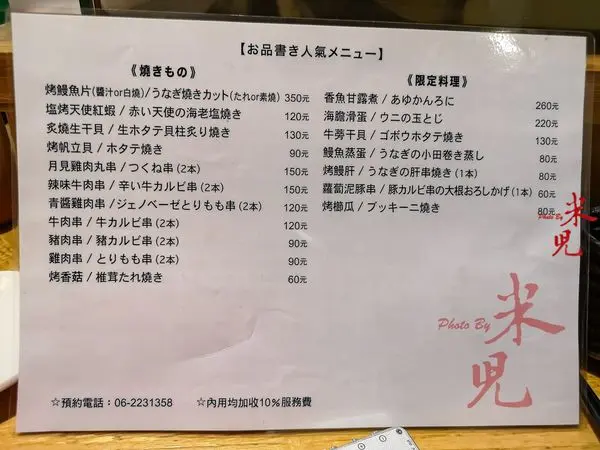 【お品書き人氣メニュー】
《燒きもの》
烤鰻魚片(醬汁or白燒)/うなぎ燒きカット(たれor素燒) 350元
塩烤天使紅蝦/赤い天使の海老塩燒き 120元
炙燒生干貝/生ホタテ貝柱炙り燒き 130元
烤帆立貝/ホタテ燒き 90元
月見雞肉丸串/つくね串(2本) 150元
辣味牛肉串/辛い牛カルビ串(2本) 150元
青醬雞肉串/ジェノベーゼとりもも串(2本) 120元
牛肉串/牛カルビ串(2本) 120元
豬肉串/豬カルビ串(2本) 90元
雞肉串/とりもも串(2本) 90元
烤香菇/椎茸たれ燒き 60元
《限定料理》
香魚甘露煮/あゆかんろに 260元
海膽滑蛋/ウニの玉とじ 220元
牛蒡干貝/ゴボウホタテ燒き 130元
鰻魚蒸蛋/うなぎの小田卷き蒸し 80元
烤鰻肝/うなぎの肝串燒き(1本) 80元
蘿蔔泥豚串/豚カルビ串の大根おろしかげ(1本) 60元
烤櫛瓜/ブッキーニ燒き 80元
Photo By 米兒
Photo By 米兒
☆預約電話:06-2231358 ☆內用均加收10%服務費